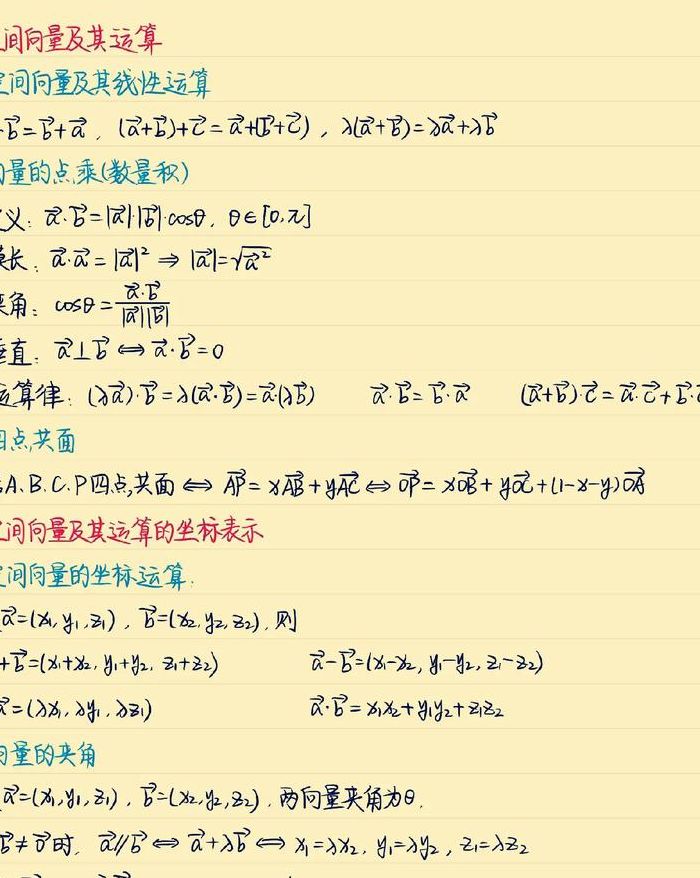 间向量及其运算
空间向量及其线性运算
+b⃗=b⃗+a⃗, (a⃗+b⃗)+c⃗=a⃗+(b⃗+c⃗), λ(a⃗+b⃗)=λa⃗+λb⃗
向量的点乘(数量积)
义: a⃗·b⃗=|a⃗|·|b⃗|·cosθ, θ∈[0,π]
模长: a⃗·a⃗=|a⃗|² ⇒ |a⃗|=√a⃗²
夹角: cosθ=a⃗·b⃗/|a⃗||b⃗|
垂直: a⃗⊥b⃗ ⇔ a⃗·b⃗=0
运算律: (λa⃗)·b⃗=λ(a⃗·b⃗)=a⃗·(λb⃗) a⃗·b⃗=b⃗·a⃗ (a⃗+b⃗)·c⃗=a⃗·c⃗+b⃗·
四点共面
A.B.C.P四点共面 ⇔ AP⃗=xAB⃗+yAC⃗ ⇔ OP⃗=xOB⃗+yOC⃗+(1-x-y)OA⃗
空间向量及其运算的坐标表示
空间向量的坐标运算.
a⃗=(x₁,y₁,z₁), b⃗=(x₂,y₂,z₂), 则
+b⃗=(x₁+x₂, y₁+y₂, z₁+z₂) a⃗-b⃗=(x₁-x₂, y₁-y₂, z₁-z₂)
a⃗=(λx₁, λy₁, λz₁) a⃗·b⃗=x₁x₂+y₁y₂+z₁z₂
向量的夹角
a⃗=(x₁,y₁,z₁), b⃗=(x₂,y₂,z₂), 两向量夹角为θ.
b⃗≠0⃗时, a⃗//b⃗ ⇔ a⃗+λb⃗ ⇔ x₁=λx₂, y₁=λy₂, z₁=λz₂